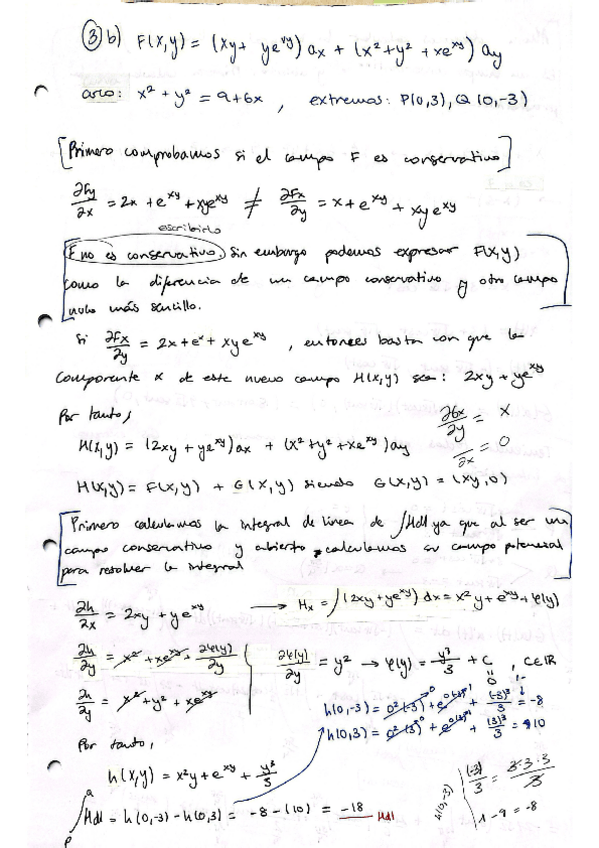 ③ b) F(x,y) = (xy + ye^xy) ax + (x² + y² + xe^xy) ay
arco: x² + y² = 9 + 6x , extremos: P(0,3), Q(0,-3)
[Primero comprobamos si el campo F es conservativo]
∂Fy/∂x = 2x + e^xy + xye^xy ≠ ∂Fx/∂y = x + e^xy + xye^xy
escribirlo
F no es conservativo, Sin embargo podemos expresar F(x,y)
como la diferencia de un campo conservativo y otro campo
mucho más sencillo.
Si ∂Fx/∂y = 2x + e^x + xye^xy , entonces basta con que la
componente x de este nuevo campo H(x,y) sea: 2xy + ye^xy
Por tanto,
∂Gx/∂y = x
/∂x = 0
H(x,y) = (2xy + ye^xy) ax + (x² + y² + xe^xy) ay
H(x,y) = F(x,y) + G(x,y) siendo G(x,y) = (xy, 0)
[Primero calculamos la integral de línea de ∫Hdl ya que al ser un
campo conservativo y abierto, calculamos su campo potencial
para resolver la integral]
∂h/∂x = 2xy + ye^xy → Hx = ∫(2xy + ye^xy) dx = x²y + e^xy + φ(y)
∂h/∂y = x² + xe^xy + ∂φ(y)/∂y
∂φ(y)/∂y = y² → φ(y) = y³/3 + C , C∈ℝ
0
∂h/∂y = x² + y² + xe^xy
h(0,-3) = 0²(-3) + e^0(-3) + (-3)³/3 = -8
h(0,3) = 0²(3) + e^0(3) + (3)³/3 = 10
Por tanto,
h(x,y) = x²y + e^xy + y³/3
∫ Hdl = h(0,-3) - h(0,3) = -8 - (10) = -18 Hdl
h(0,-3)
(-3)/3 = 3·3·3/3
1 - 9 = -8